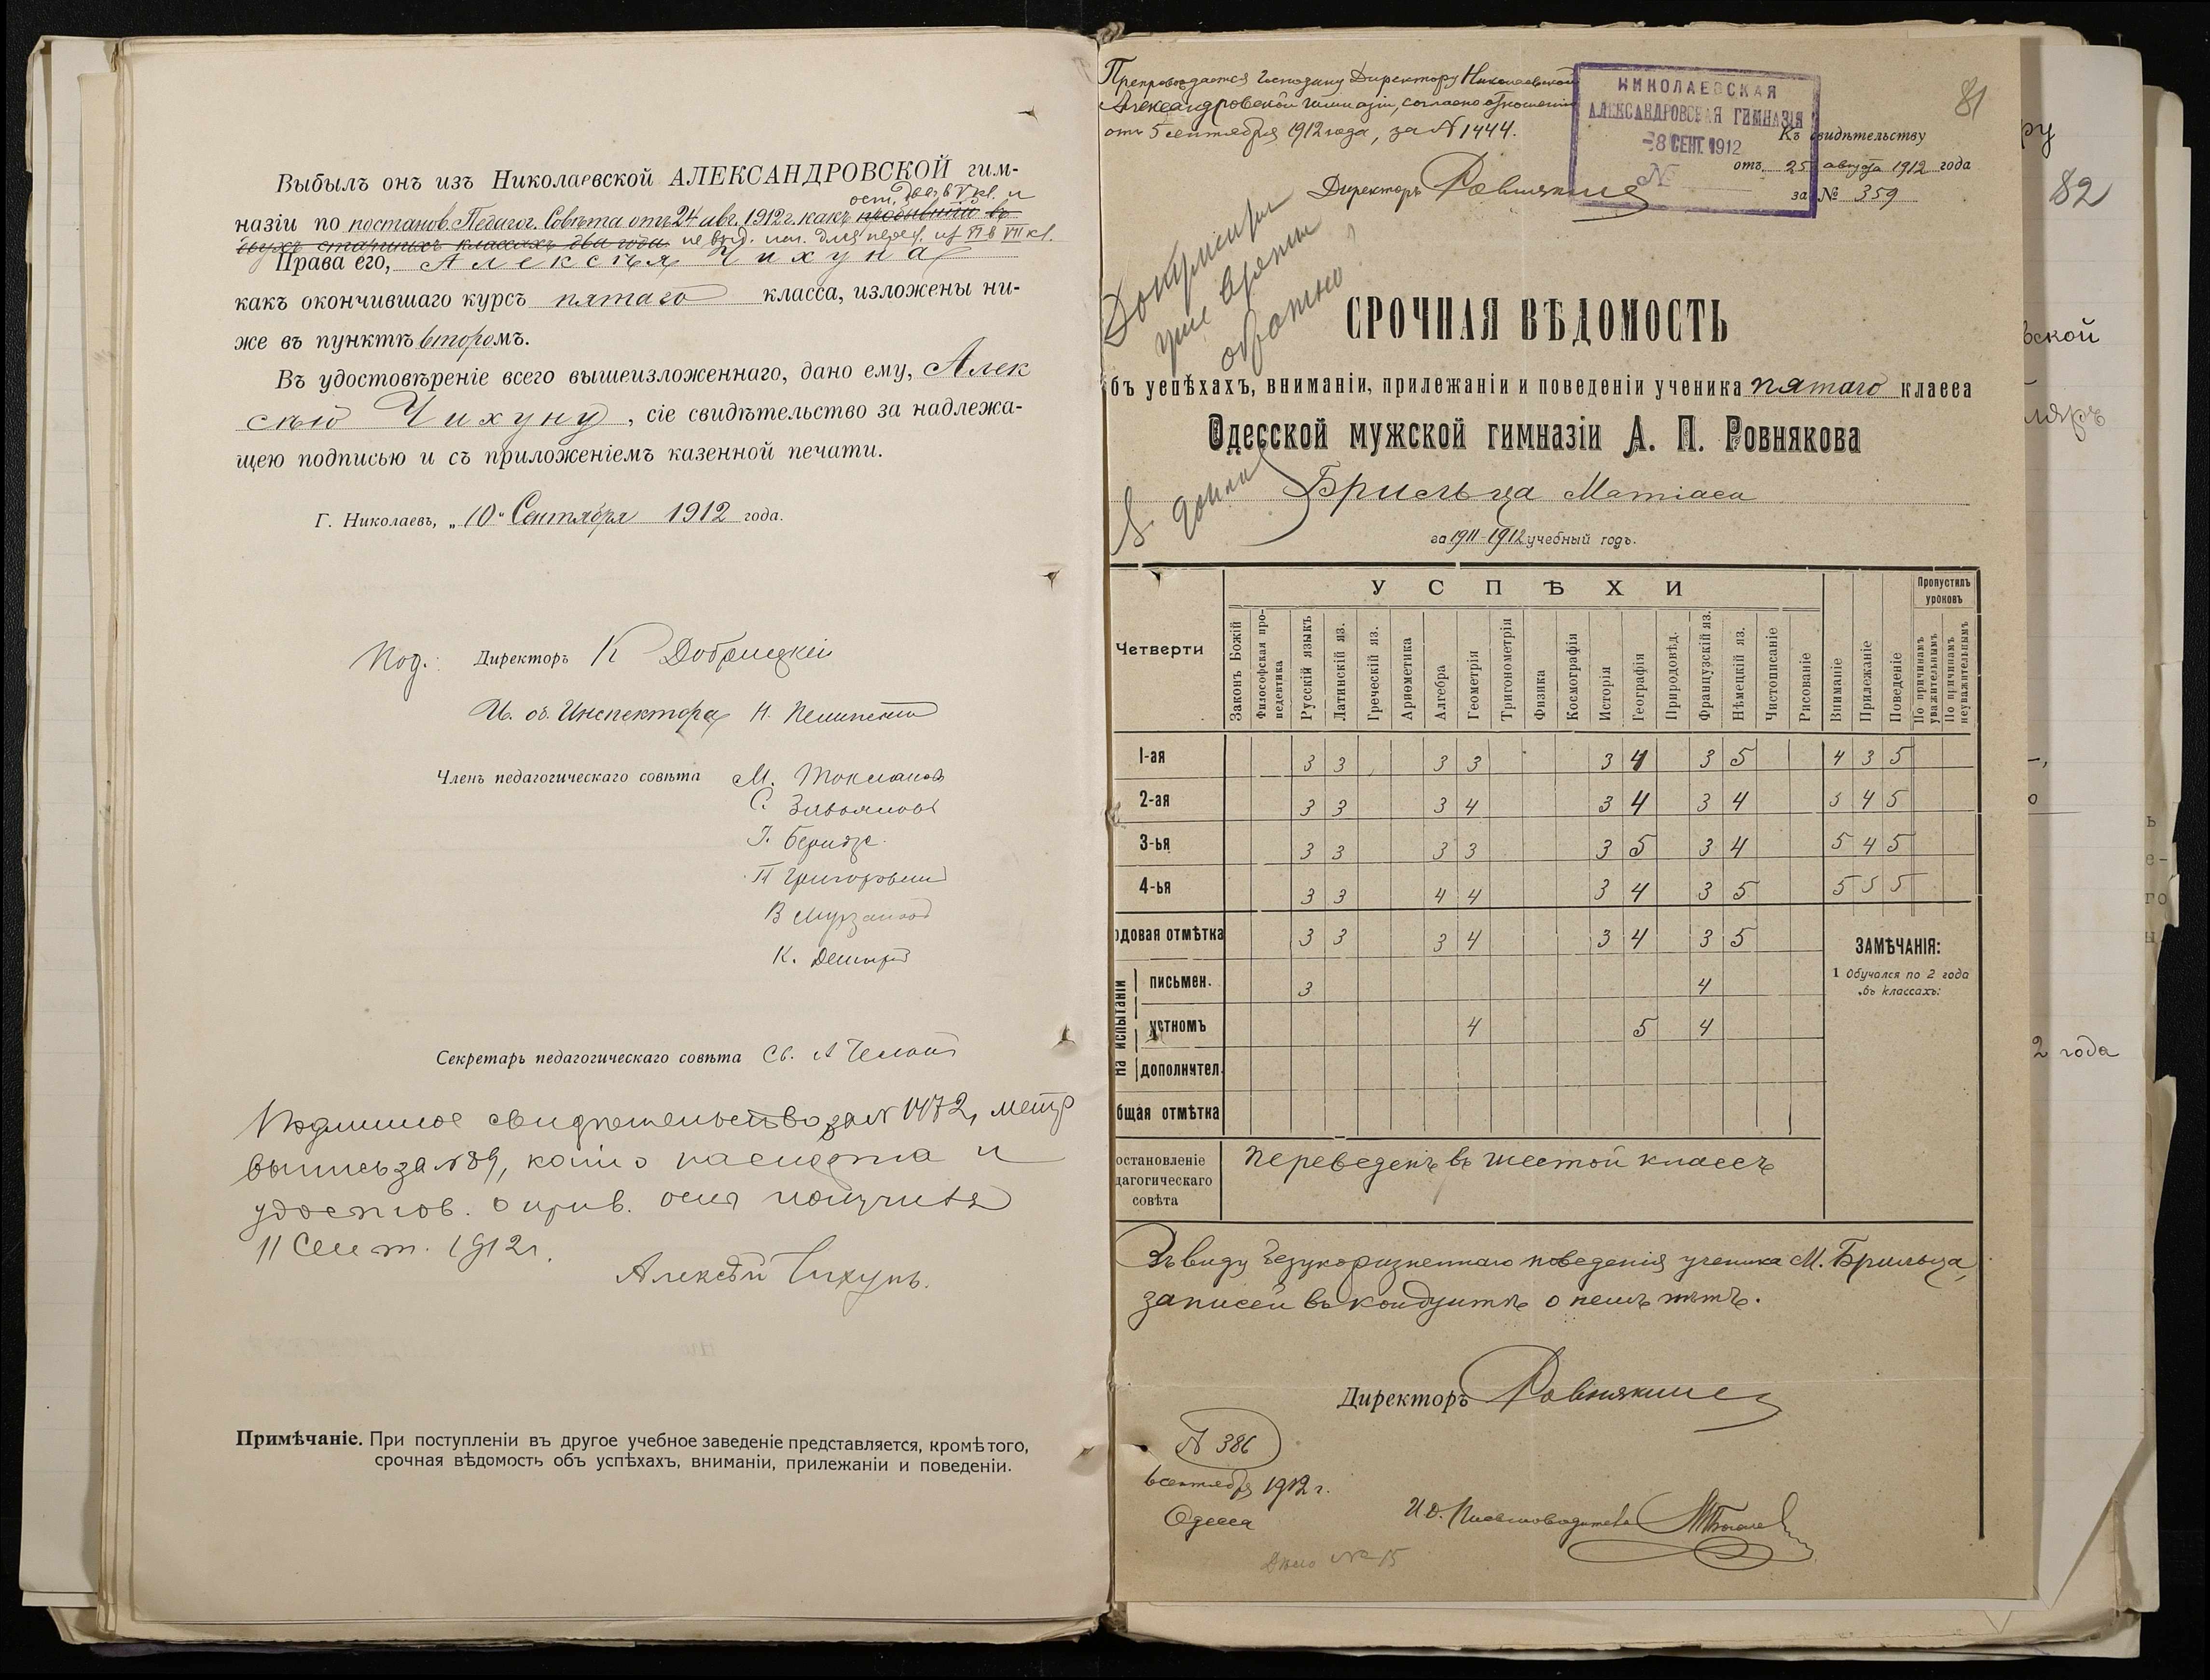 Выбылъ онъ изъ Николаевской АЛЕКСАНДРОВСКОЙ гим-
ост. два в V кл. и
назіи по постанов. Педагог. Совѣта отъ 24 авг. 1912 г. какъ пробывшій въ
двухъ старшихъ классахъ два года не выд. исп. для перев. из VI в VII кл.
Права его, Алексѣя Чихуна
какъ окончившаго курсъ пятаго класса, изложены ни-
же въ пунктѣ второмъ.
Въ удостовѣреніе всего вышеизложеннаго, дано ему, Алек
сѣю Чихуну, сіе свидѣтельство за надлежа-
щею подписью и съ приложеніемъ казенной печати.
Г. Николаевъ, „10" Сентября 1912 года.
Под. Директоръ К
И. об. Инспектора Н.
Членъ педагогическаго совѣта М.
С.
І. Беридзе.
П Григоровичъ
В
К.
Секретарь педагогическаго совѣта Св. А
Подлинное свидѣтельство за № 1472, метр
выпись за № 89, копію и
удостов. о прив. оспы получилъ
11 Сент. 1912 г.
Алексѣй Чихунъ.
Примѣчаніе. При поступленіи въ другое учебное заведеніе представляется, кромѣ того,
срочная вѣдомость объ успѣхахъ, вниманіи, прилежаніи и поведеніи.
Препровождается Господину Директору Николаевской
Александровской гимназіи, согласно отношенія
отъ 5 сентября 1912 года, за № 1444.
Директоръ Ровняковъ
НИКОЛАЕВСКАЯ
АЛЕКСАНДРОВСКАЯ ГИМНАЗІЯ
-8 СЕНТ. 1912
№
81
Къ свидѣтельству
отъ 25 августа 1912 года
за № 359
Документы
уже взяты
обратно
СРОЧНАЯ ВѢДОМОСТЬ
бъ успѣхахъ, вниманіи, прилежаніи и поведеніи ученика пятаго класса
Одесской мужской гимназіи А. П. Ровнякова
Брильца Матіаса
за 1911-1912 учебный годъ.
Четверти
УСПѢХИ
Законъ Божій
Философская про-
педевтика
Русскій языкъ
Латинскій яз.
Греческій яз.
Ариѳметика
Алгебра
Геометрія
Тригонометрія
Физика
Космографія
Исторія
Географія
Природовѣд.
Французскій яз.
Нѣмецкій яз.
Чистописаніе
Рисованіе
Вниманіе
Прилежаніе
Поведеніе
Пропустилъ
уроковъ
По причинамъ
уважительнымъ
По причинамъ
неуважительнымъ
1-ая 3 3 3 3 3 4 3 5 4 3 5
2-ая 3 3 3 4 3 4 3 4 5 4 5
3-ья 3 3 3 3 3 5 3 4 5 4 5
4-ья 3 3 4 4 3 4 3 5 5 5 5
одовая отмѣтка 3 3 3 4 3 4 3 5
На испытаніи
письмен. 3 4
устномъ 4 5 4
дополнител.
бщая отмѣтка
ЗАМѢЧАНІЯ:
1 Обучался по 2 года
въ классахъ:
остановленіе
дагогическаго
совѣта
Переведенъ въ шестой классъ
Въ виду безукоризненнаго поведенія ученика М. Брильца,
записей въ кондуитѣ о немъ нѣтъ.
Директоръ Ровняковъ
№ 386
6 сентября 1912 г.
Одесса
И. О. Письмоводителя
Дѣло № 15
82
ру
вской
2 года